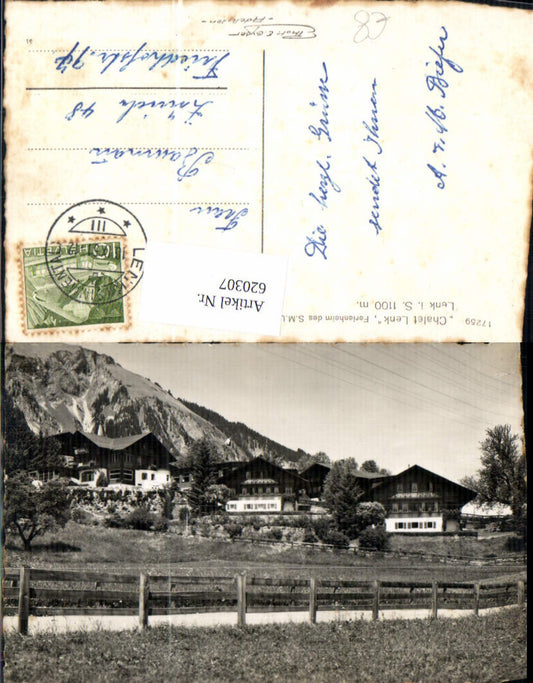 17259 „Chalet Lenk“, Ferienheim des S.M.
Lenk i. S. 1100 m.
Die herzl. Grüsse
sendet Ihnen
A. u. M. Biefer
Frau
Baumann
Zürich 48
Friedhofstr. 77
LENK
III
HELVETIA
Artikel Nr.
620307